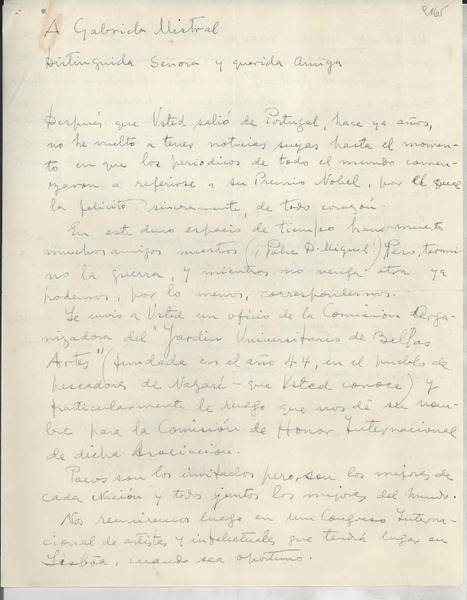 2165
A Gabriela Mistral
Distinguida Senora y querida Amiga
Después que Usted salió de Portugal, hace ya años,
no he vuelto a tener noticias suyas hasta el momen-
to en que los periodicos de todo el mundo comen-
zaron a referirse a su Premio Nobel, por el que
la felicito sinceramente, de todo corazón.
En este duro espacio de tiempo han muerto
muchos amigos nuestros (¡Pobre D. Miguel!) Pero, termi
no la guerra, y mientras no venga otra ya
podemos, por lo menos, correspondernos.
Le envio a Usted un oficio de la Comisión Orga-
nizadora del "Jardin Universitario de Bellas
Artes" (fundada en el año 44, en el pueblo de
pescadores de Nazaré - que Usted conoce) y
particularmente le ruego que nos dé su nom-
bre para la Comisión de Honor Internacional
de dicha Asociación.
Pocos son los invitados pero son los mejores de
cada Nación y todos juntos los mejores del Mundo.
Nos reuniremos luego en un Congreso Interna-
cional de artistas y intelectuales que tendrá lugar en
Lisbôa, cuando sea oportuno.